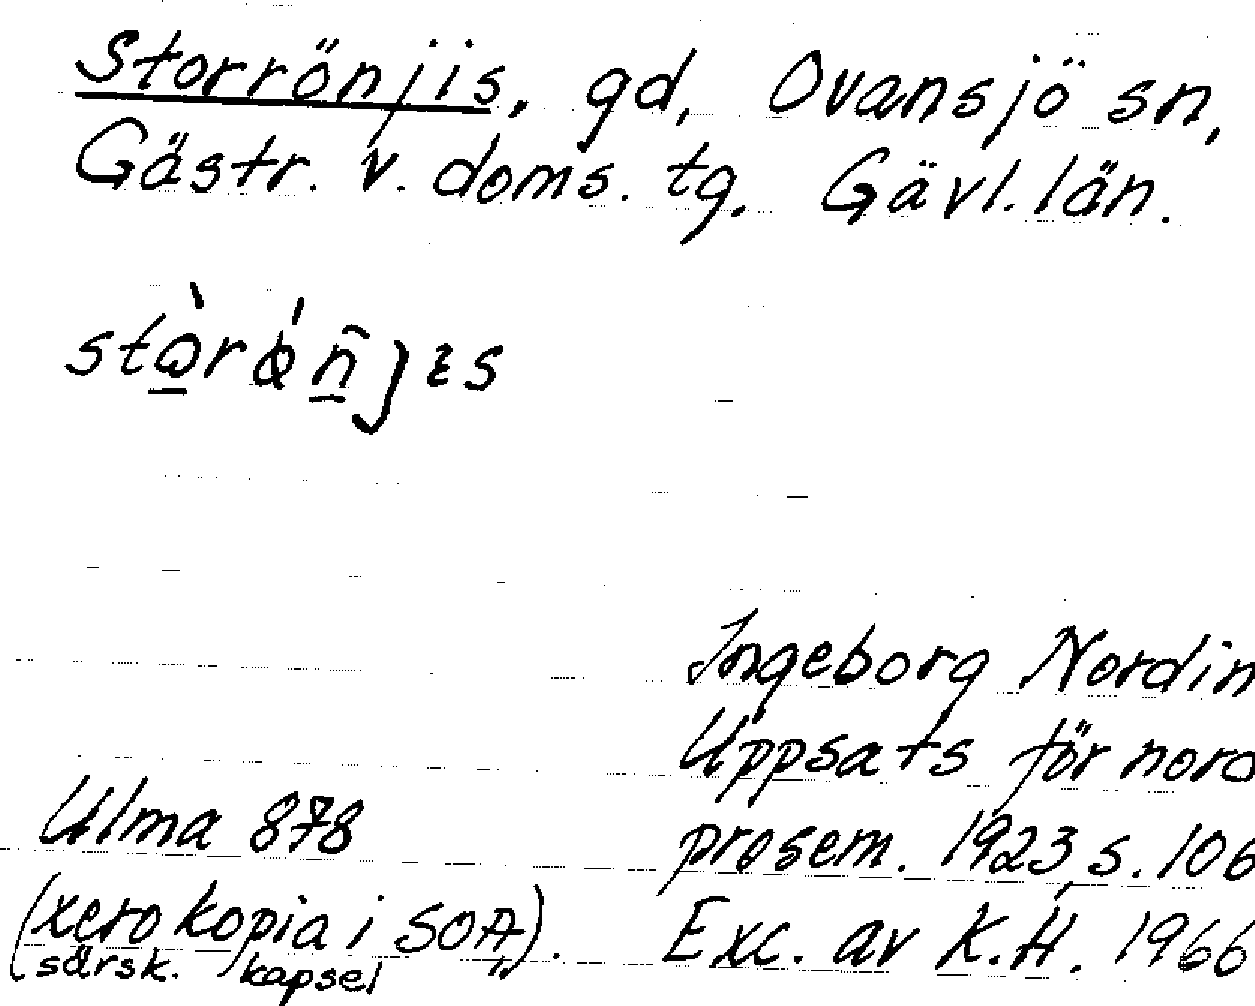 Storrönjis, gd, Ovansjö sn,
Gästr. v. doms. tg. Gävl. län.
Ingeborg Nordin
Uppsats för nord
prosem. 1923, s. 106
Exc. av K.H. 1966
Ulma 878
(xerokopia i SOA,).
särsk. kapsel